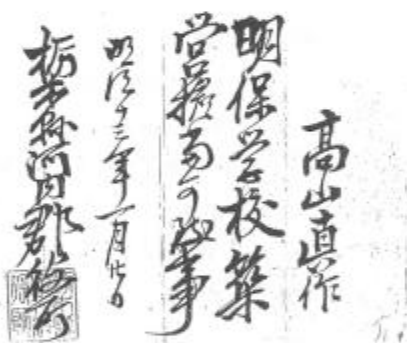 高山直作
明保学校築
営擔当可致事
明治十三年一月廿日
栃木縣河内郡役所